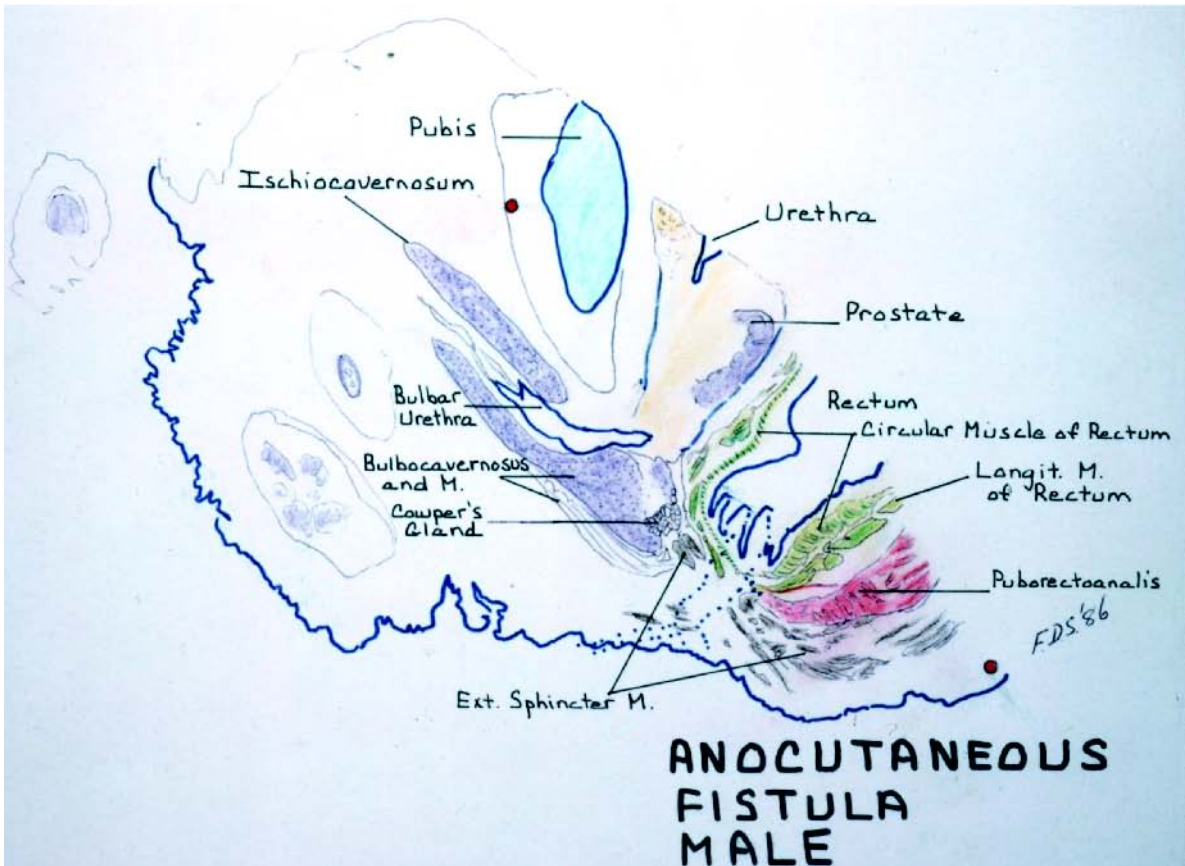 Pubis
Ischiocavernosum
Urethra
Prostate
Bulbar
Urethra
Rectum
Circular Muscle of Rectum
Bulbocavernosus
and M.
Longit. M.
of Rectum
Cowper's
Gland
Puborectoanalis
F.D.S.'86
Ext. Sphincter M.
ANOCUTANEOUS
FISTULA
MALE